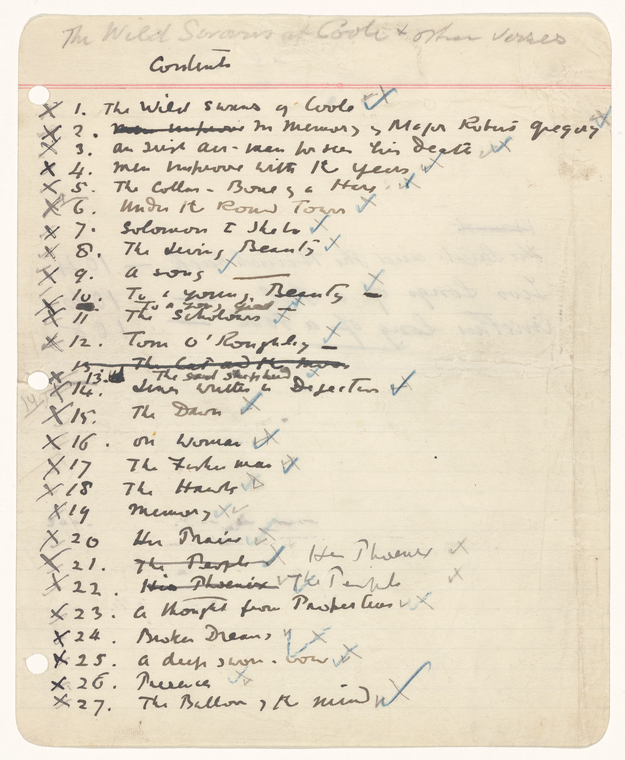 The Wild Swans at Coole & other verses
Contents
X 1. The Wild Swans of Coole
X 2. men improve In Memory of Major Robert Gregory
X 3. an Irish air-man foresees his Death
X 4. men improve with the years
X 5. The Collar-Bone of a Hare
X 6. Under the Round Tower
X 7. Solomon to Sheba
X 8. The Living Beauty
X 9. A song
X 10. To a young Beauty
To a young girl
X 11 The Scholars
X 12. Tom O'Roughley
13. The Cat and the moon
X 13. The sad shepherd
14.
X 14. Lines written in Dejection
X 15. The Dawn
X 16. on Woman
X 17 The Fisherman
X 18 The Hawk
X 19 memory
X 20 Her Praise
X 21. The People Her Phoenix X
X 22. His Phoenix The People X
X 23. a thought from Propertius
X 24. Broken Dreams
X 25. a deep sworn-vow
X 26. Presences
X 27. The Balloon of the mind